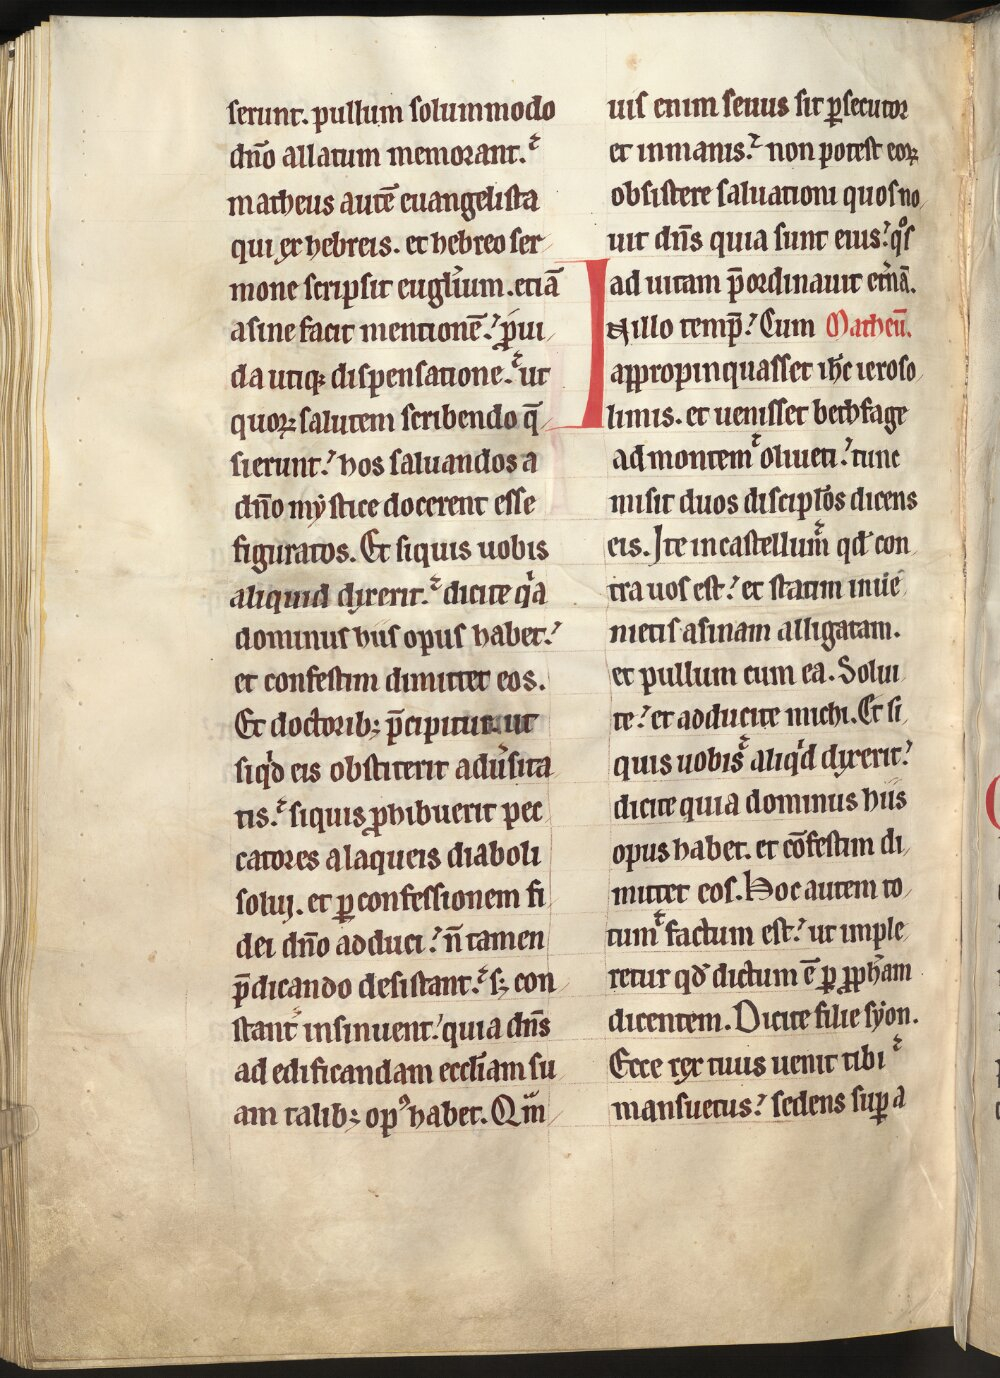 serunt. pullum solummodo
dn̄o allatum memorant.
matheus autē euangelista
qui ex hebreis. et hebreo ser
mone scripsit eugl̄ium. etiā
asine facit mentionē. p̄ui
da utiqꝫ dispensatione. ut
quoꝝ salutem scribendo q̄
sierunt. hos saluandos a
dn̄o mẏstice docerent esse
figuratos. Et siquis uobis
aliquid dixerit. dicite qͥa
dominus hiis opus habet.
et confestim dimittet eos.
Et doctoribꝫ p̄cipitur. ut
siqͥd eis obstiterit adu̾sita
tis. siquis ꝓhibuerit pec
catores a laqueis diaboli
solui. et ꝑ confessionem fi
dei dn̄o adduci. n̄ tamen
p̄dicando desistant. sꝫ con
stanť insinuent. quia dn̄s
ad edificandam eccl̄iam su
am talibꝫ opꝰ habet. Qm̄
uis enim seuus sit ꝑsecutor
et inmanis. non potest eoꝝ
obsistere saluationi quos no
uit dn̄s quia sunt eius. qͦs
ad uitam p̄ordinauit et̾nā.
In illo temp̄. Cum Matheū.
appropinquasset ih̄c ieroso
limis. et uenisset bethfage
ad montem oliueti. tunc
misit duos discipl̄os dicens
eis. Ite in castellum qd̄ con
tra uos est. et statim inue
nietis asinam alligatam.
et pullum cum ea. Solui
te. et adducite michi. Et si
quis uobis aliqͥd dixerit.
dicite quia dominus hiis
opus habet. et cōfestim di
mittet eos. Hoc autem to
tum factum est. ut imple
retur qd̄ dictum ē ꝑ ꝓph̄am
dicentem. Dicite filie sẏon.
Ecce rex tuus uenit tibi
mansuetus. sedens suꝑ a